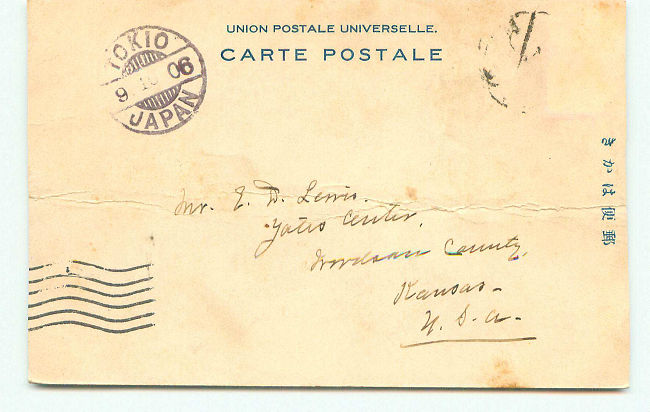 UNION POSTALE UNIVERSELLE.
CARTE POSTALE
TOKIO
9 06
JAPAN
郵便はかき
Mr. E. D. Lewis.
Yates Center,
Woodson County,
Kansas-
U.S.A.-